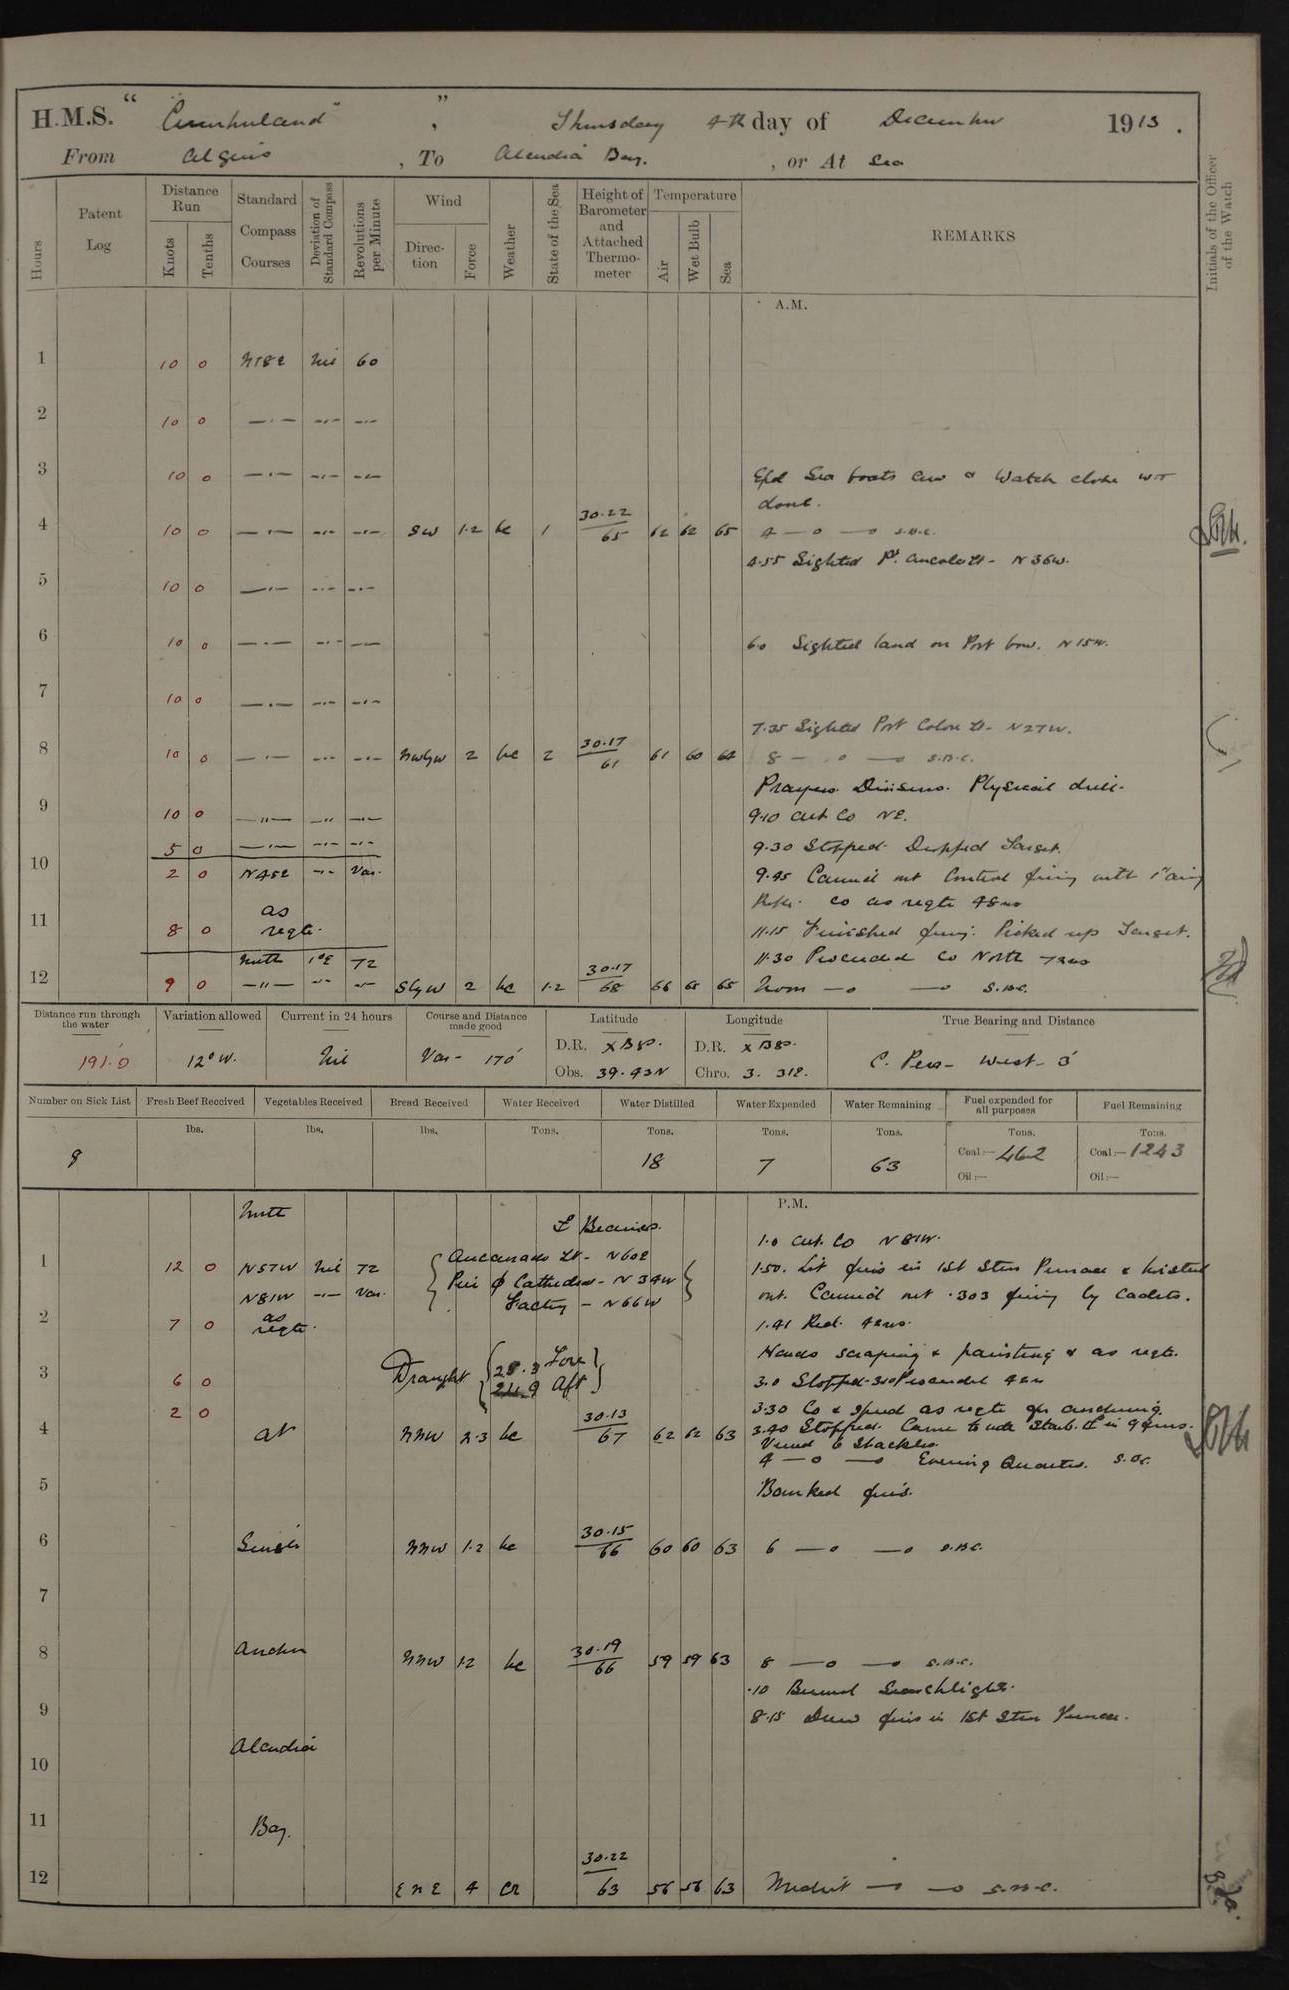 H.M.S. " Cumberland "
Thursday 4th day of December 1913 .
From Algiers , To Alcudia Bay. , or At Sea
Hours
Patent Log
Distance Run
Knots
Tenths
Standard Compass Courses
Deviation of Standard Compass
Revolutions per Minute
Wind
Direc-tion
Force
Weather
State of the Sea
Height of Barometer and Attached Thermo-meter
Temperature
Air
Wet Bulb
Sea
REMARKS
Initials of the Officer of the Watch
A.M.
1 10 0 N18E Nil 60
2 10 0 —·— —·— —·—
3 10 0 —·— —·— —·— Sea boats crew & Watch closed W.T.
doors.
4 10 0 —·— —·— —·— SW 1·2 bc 1 30·22/65 62 62 65 4 —o —o S.B.C.
4·55 Sighted N 36W.
5 10 0 —·— —·— —·—
6 10 0 —·— —·— —·— 6·0 Sighted land on Port bow. N 15W.
7 10 0 —·— —·— —·—
7·35 Sighted Port Colom Lt. N27W.
8 10 0 —·— —·— —·— NWbyW 2 bc 2 30·17/61 61 60 64 8 —o —o S.B.C.
Prayers. Divisions. Physical drill.
9 10 0 —"— —"— —"— 9·10 alt. Co NE.
5 0 —·— —·— —·— 9·30 Stopped. Dropped Target.
10 2 0 N45E —·— Var. 9·45 Carried out Control firing with 1" aiming
Rifle. Co as reqte 48 revs
11 8 0 as reqte. 11·15 Finished firing. Picked up Target.
North 1°E 72 11·30 Proceeded Co North 72 revs
12 9 0 —"— —"— —"— SbyW 2 bc 1·2 30·17/68 66 65 65 Noon —o —o S.B.C.
Distance run through the water
191·0
Variation allowed
12° W.
Current in 24 hours
Nil
Course and Distance made good
Var - 170'
Latitude
D.R.
Obs. 39·43N
Longitude
D.R.
Chro. 3. 31E.
True Bearing and Distance
C. Pera - West - 3'
Number on Sick List
8
Fresh Beef Received
lbs.
Vegetables Received
lbs.
Bread Received
lbs.
Water Received
Tons.
Water Distilled
Tons.
18
Water Expended
Tons.
7
Water Remaining
Tons.
63
Fuel expended for all purposes
Tons.
Coal:— 462
Oil:—
Fuel Remaining
Tons.
Coal:— 1243
Oil:—
P.M.
North
Bearings.
1·0 alt. Co N 81W.
1 12 0 N57W Nil 72 Lt - N60E 1·50. Lit fires in 1st Stm Pinnace & hoisted
N81W —·— Var. Cathedral - N 34W out. Carried out ·303 firing by Cadets.
Factory - N66W
2 7 0 as reqte. 1·41 Red. 48 revs.
Hands scraping & painting & as reqte.
3 6 0 Draught 25·3 Fore 24·9 Aft 3·0 Stopped 3·10 Proceeded 48 revs
2 0 3·30 Co & Speed as reqte for anchoring.
3·40 Stopped. Came to with Starb. in 9 fms.
Veered 6 Shackles.
4 At NNW 2·3 bc 30·13/67 62 62 63 4 —o —o Evening Quarters. S.B.C.
5 Banked fires.
6 Single NNW 1·2 bc 30·15/66 60 60 63 6 —o —o S.B.C.
7
8 Anchor NNW 1·2 bc 30·19/66 59 59 63 8 —o —o S.B.C.
·10 Burned Searchlights.
9 8·15 Drew fires in 1st Stm Pinnace.
10 Alcudia
11 Bay.
12 ENE 4 30·22/63 56 56 63 Midnt —o —o S.B.C.